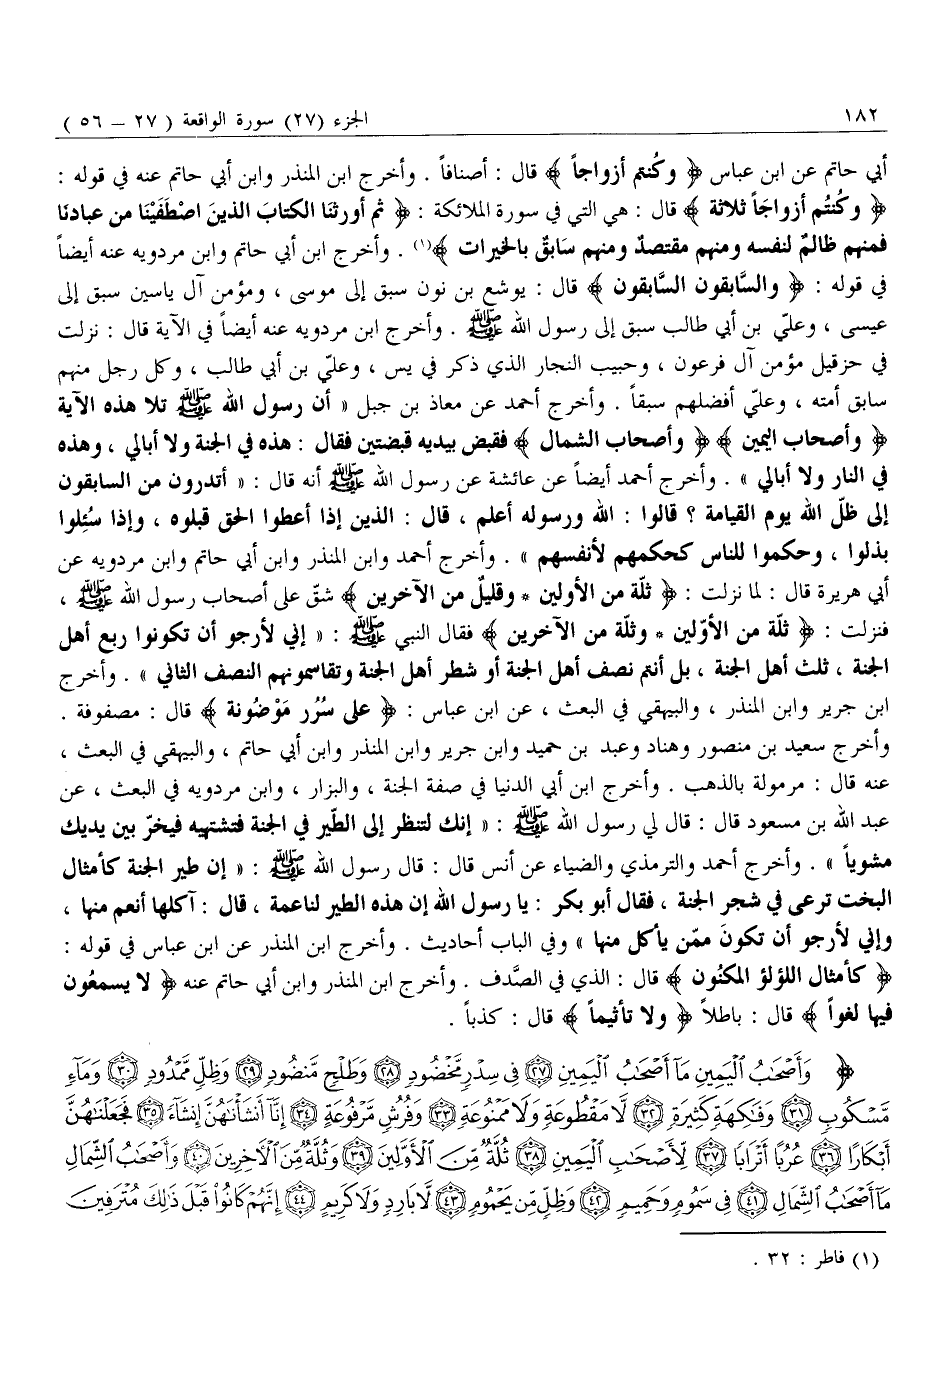 ١٨٢ الجزء (٢٧) سورة الواقعة (٢٧ – ٥٦)
أبي حاتم عن ابن عباس ﴿ وكُنتم أزواجاً ﴾ قال : أصنافاً . وأخرج ابن المنذر وابن أبي حاتم عنه في قوله :
﴿ وكُنتُم أزواجَاً ثلاثة ﴾ قال : هي التي في سورة الملائكة : ﴿ ثم أورثنَا الكتابَ الذينَ اصْطَفَيْنَا من عبادنَا
فمنهم ظالمٌ لنفسه ومنهم مقتصدٌ ومنهم سابقٌ بالخيرات ﴾(١) . وأخرج ابن أبي حاتم وابن مردويه عنه أيضاً
في قوله : ﴿ والسَّابقون السَّابقون ﴾ قال : يوشع بن نون سبق إلى موسى ، ومؤمن آل ياسين سبق إلى
عيسى ، وعليّ بن أبي طالب سبق إلى رسول الله ﷺ . وأخرج ابن مردويه عنه أيضاً في الآية قال : نزلت
في حزقيل مؤمن آل فرعون ، وحبيب النجار الذي ذكر في يس ، وعليّ بن أبي طالب ، وكل رجل منهم
سابق أمته ، وعليّ أفضلهم سبقاً . وأخرج أحمد عن معاذ بن جبل « أن رسول الله ﷺ تلا هذه الآية
﴿ وأصحاب اليمين ﴾ ﴿ وأصحاب الشمال ﴾ فقبض بيديه قبضتين فقال : هذه في الجنة ولا أبالي ، وهذه
في النار ولا أبالي » . وأخرج أحمد أيضاً عن عائشة عن رسول الله ﷺ أنه قال : « أتدرون من السابقون
إلى ظلّ الله يوم القيامة ؟ قالوا : الله ورسوله أعلم ، قال : الذين إذا أعطوا الحق قبلوه ، وإذا سُئِلوا
بذلوا ، وحكموا للناس كحكمهم لأنفسهم » . وأخرج أحمد وابن المنذر وابن أبي حاتم وابن مردويه عن
أبي هريرة قال : لما نزلت : ﴿ ثلّة من الأولين * وقليلٌ من الآخرين ﴾ شقّ على أصحاب رسول الله ﷺ ،
فنزلت : ﴿ ثلّة من الأوّلين * وثلّة من الآخرين ﴾ فقال النبي ﷺ : « إني لأرجو أن تكونوا ربع أهل
الجنة ، ثلث أهل الجنة ، بل أنتم نصف أهل الجنة أو شطر أهل الجنة وتقاسمونهم النصف الثاني » . وأخرج
ابن جرير وابن المنذر ، والبيهقي في البعث ، عن ابن عباس : ﴿ على سُرُر مَوْضُونة ﴾ قال : مصفوفة .
وأخرج سعيد بن منصور وهناد وعبد بن حميد وابن جرير وابن المنذر وابن أبي حاتم ، والبيهقي في البعث ،
عنه قال : مرمولة بالذهب . وأخرج ابن أبي الدنيا في صفة الجنة ، والبزار ، وابن مردويه في البعث ، عن
عبد الله بن مسعود قال : قال لي رسول الله ﷺ : « إنك لتنظر إلى الطّير في الجنة فتشتهيه فيخرّ بين يديك
مشوياً » . وأخرج أحمد والترمذي والضياء عن أنس قال : قال رسول الله ﷺ : « إن طير الجنة كأمثال
البخت ترعى في شجر الجنة ، فقال أبو بكر : يا رسول الله إن هذه الطير لناعمة ، قال : آكلها أنعم منها ،
وإني لأرجو أن تكونَ ممّن يأكل منها » وفي الباب أحاديث . وأخرج ابن المنذر عن ابن عباس في قوله :
﴿ كأمثال اللؤلؤ المكنُون ﴾ قال : الذي في الصَّدف . وأخرج ابن المنذر وابن أبي حاتم عنه ﴿ لا يسمعُون
فيها لغواً ﴾ قال : باطلاً ﴿ ولا تأثيماً ﴾ قال : كذباً .
﴿ وَأَصْحَٰبُ ٱلْيَمِينِ مَآ أَصْحَٰبُ ٱلْيَمِينِ ٢٧ فِي سِدْرٍ مَّخْضُودٍ ٢٨ وَطَلْحٍ مَّنضُودٍ ٢٩ وَظِلٍّ مَّمْدُودٍ ٣٠ وَمَآءٍ
مَّسْكُوبٍ ٣١ وَفَٰكِهَةٍ كَثِيرَةٍ ٣٢ لَّا مَقْطُوعَةٍ وَلَا مَمْنُوعَةٍ ٣٣ وَفُرُشٍ مَّرْفُوعَةٍ ٣٤ إِنَّآ أَنشَأْنَٰهُنَّ إِنشَآءً ٣٥ فَجَعَلْنَٰهُنَّ
أَبْكَارًا ٣٦ عُرُبًا أَتْرَابًا ٣٧ لِّأَصْحَٰبِ ٱلْيَمِينِ ٣٨ ثُلَّةٌ مِّنَ ٱلْأَوَّلِينَ ٣٩ وَثُلَّةٌ مِّنَ ٱلْآخِرِينَ ٤٠ وَأَصْحَٰبُ ٱلشِّمَالِ
مَآ أَصْحَٰبُ ٱلشِّمَالِ ٤١ فِي سَمُومٍ وَحَمِيمٍ ٤٢ وَظِلٍّ مِّن يَحْمُومٍ ٤٣ لَّا بَارِدٍ وَلَا كَرِيمٍ ٤٤ إِنَّهُمْ كَانُوا۟ قَبْلَ ذَٰلِكَ مُتْرَفِينَ
(١) فاطر : ٣٢ .